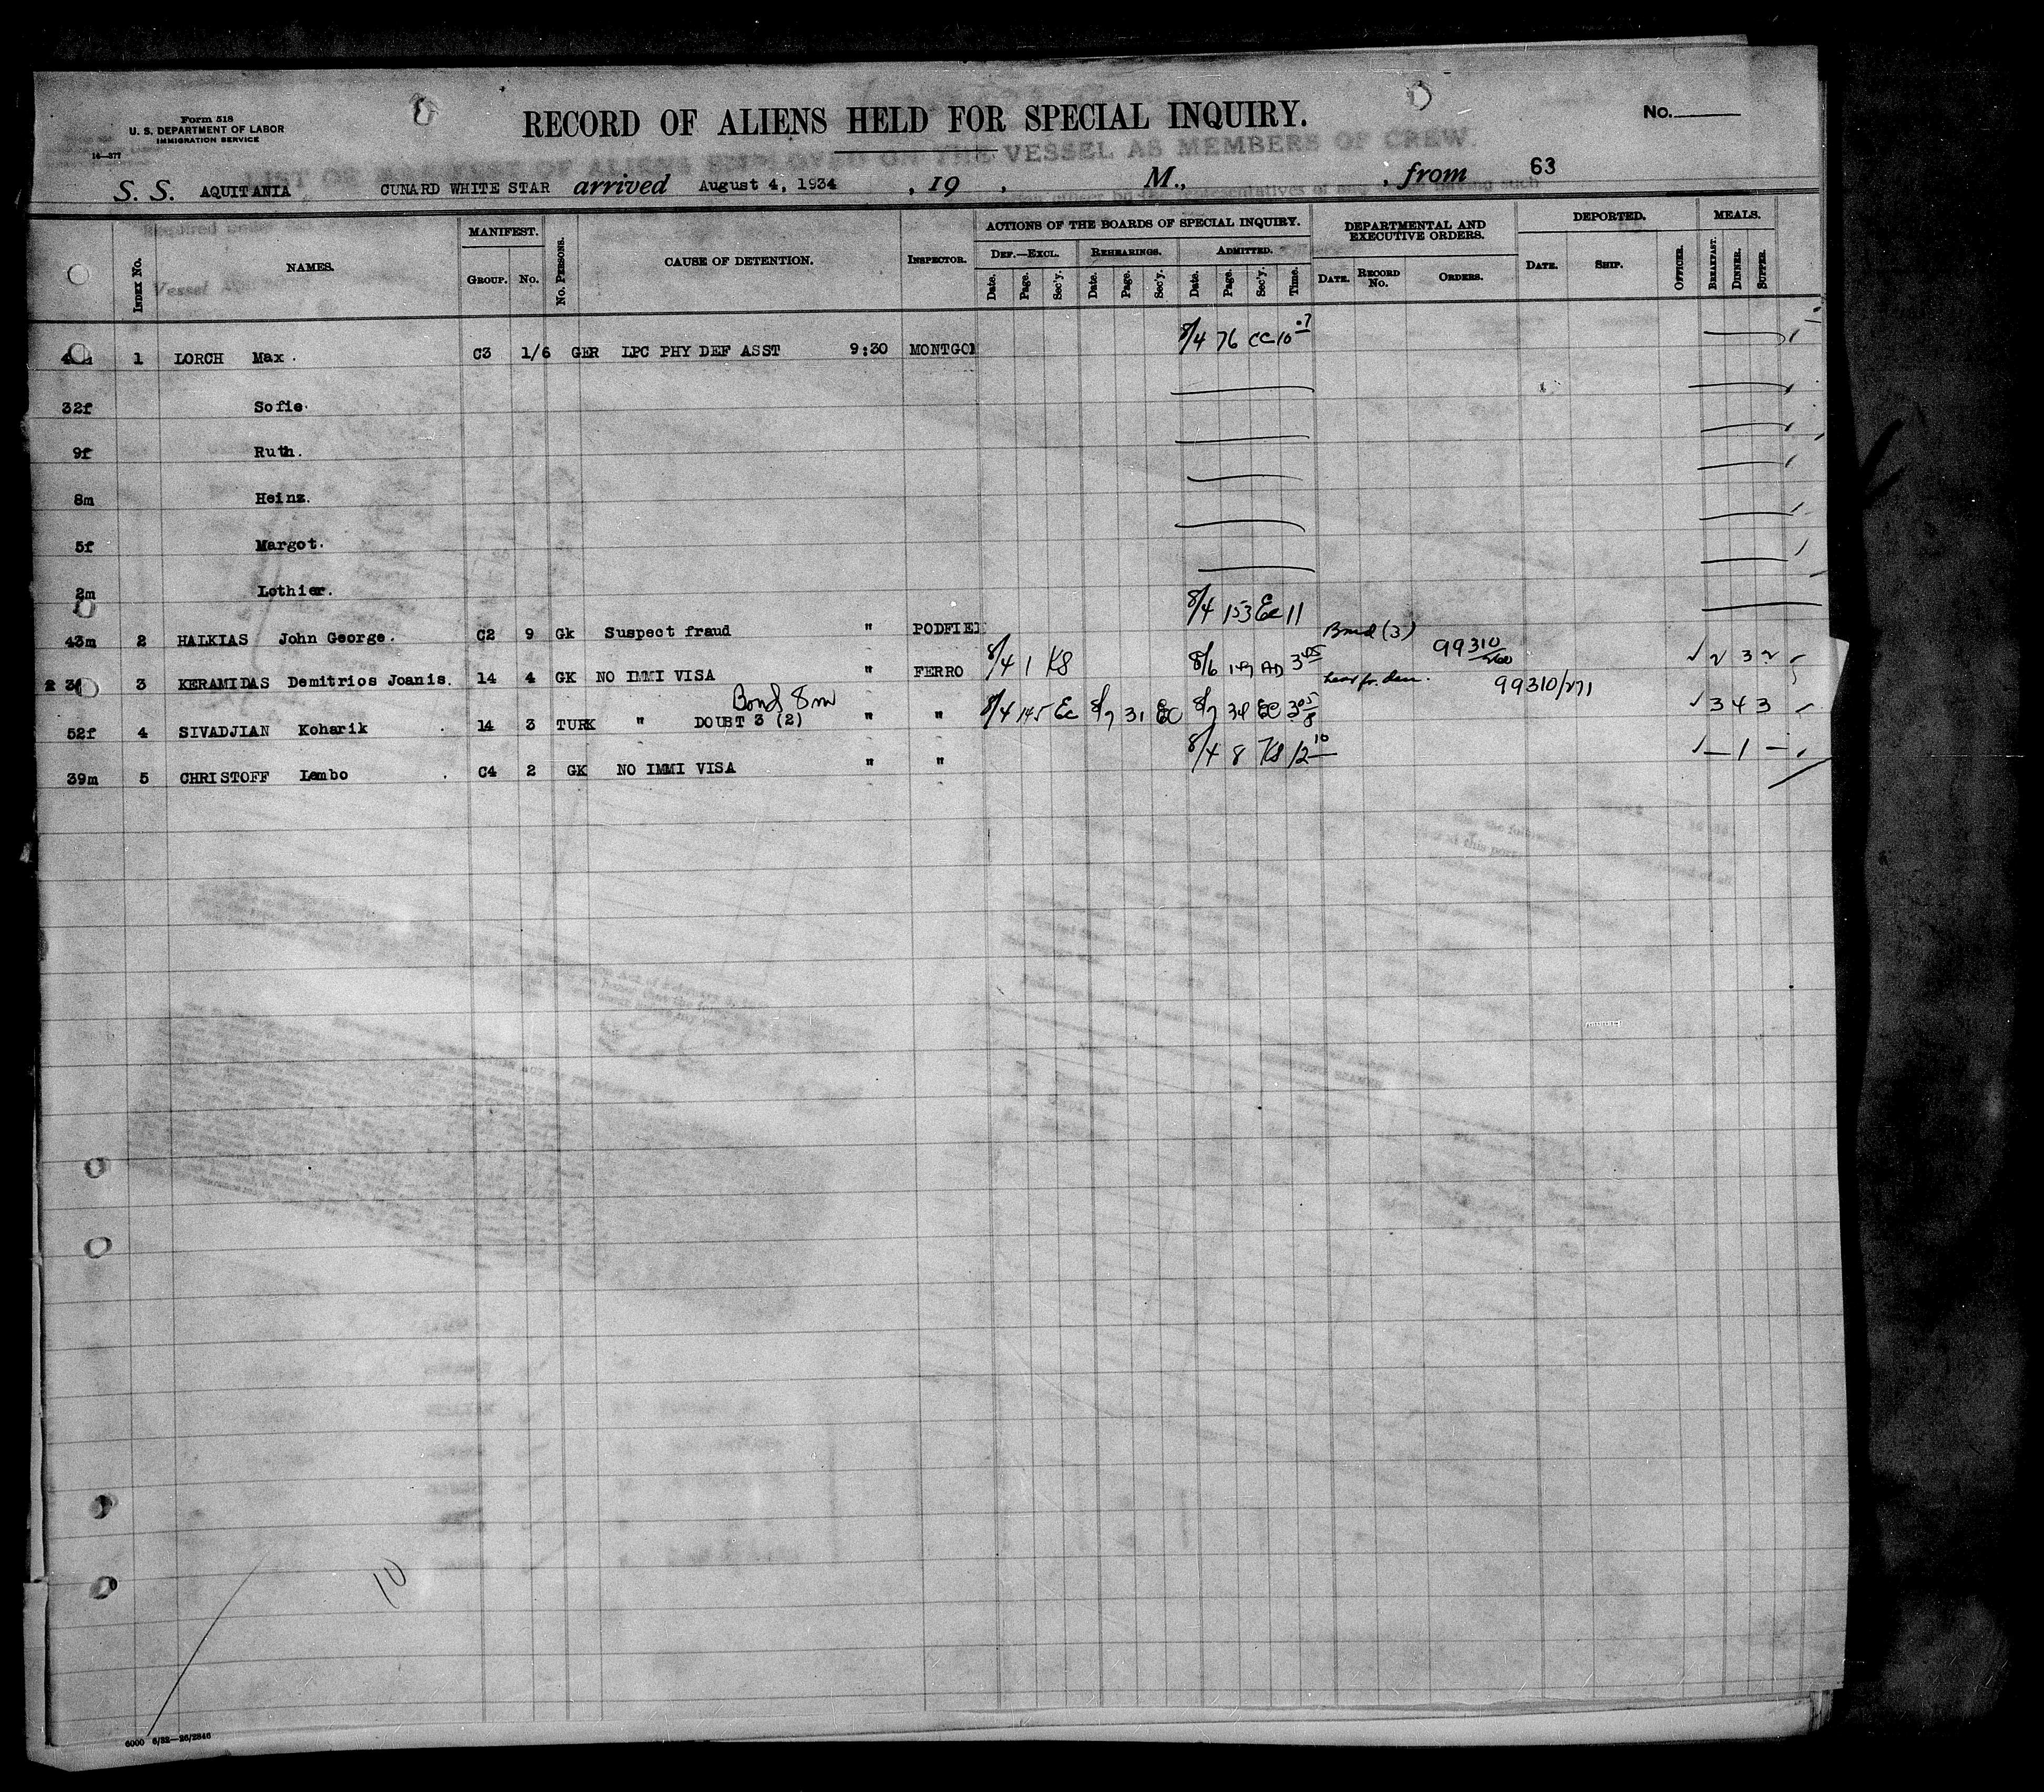 Form 518
U. S. DEPARTMENT OF LABOR
IMMIGRATION SERVICE
16—377
RECORD OF ALIENS HELD FOR SPECIAL INQUIRY.
No.
LIST OR MANIFEST OF ALIENS EMPLOYED ON THE VESSEL AS MEMBERS OF CREW.
S. S. AQUITANIA CUNARD WHITE STAR arrived August 4, 1934 , 19 , M., , from 63
INDEX NO. NAMES. MANIFEST. GROUP. NO. NO. PERSONS. CAUSE OF DETENTION. INSPECTOR. ACTIONS OF THE BOARDS OF SPECIAL INQUIRY. DEPARTMENTAL AND EXECUTIVE ORDERS. DEPORTED. MEALS.
DEF.—EXCL. REHEARINGS. ADMITTED.
Date. Page. Sec'y. Date. Page. Sec'y. Date. Page. Sec'y. Time. DATE. RECORD NO. ORDERS. DATE. SHIP. OFFICER. BREAKFAST. DINNER. SUPPER.
1 LORCH Max. C3 1/6 GER LPC PHY DEF ASST 9:30 MONTGOM 8/4 76 CC 10
32f Sofie.
9f Ruth.
8m Heinz.
5f Margot.
2m Lothier.
43m 2 HALKIAS John George. C2 9 Gk Suspect fraud " PODFIEI 8/4 153 Ec 11
3 KERAMIDAS Demitrios Joanis. 14 4 GK NO IMMI VISA " FERRO 8/4 1 KS 8/6 149 AD 3 45 Bond (3) 99310/260 2 3 2
Bond 8m
52f 4 SIVADJIAN Koharik 14 3 TURK " DOUBT 3 (2) " " 8/4 145 Ec 8/7 31 EC 8/7 34 EC 3 05 99310/271 3 4 3
39m 5 CHRISTOFF Lambo C4 2 GK NO IMMI VISA " " 8/4 8 KS 12 10 1
10
6000 6/32—26/2846